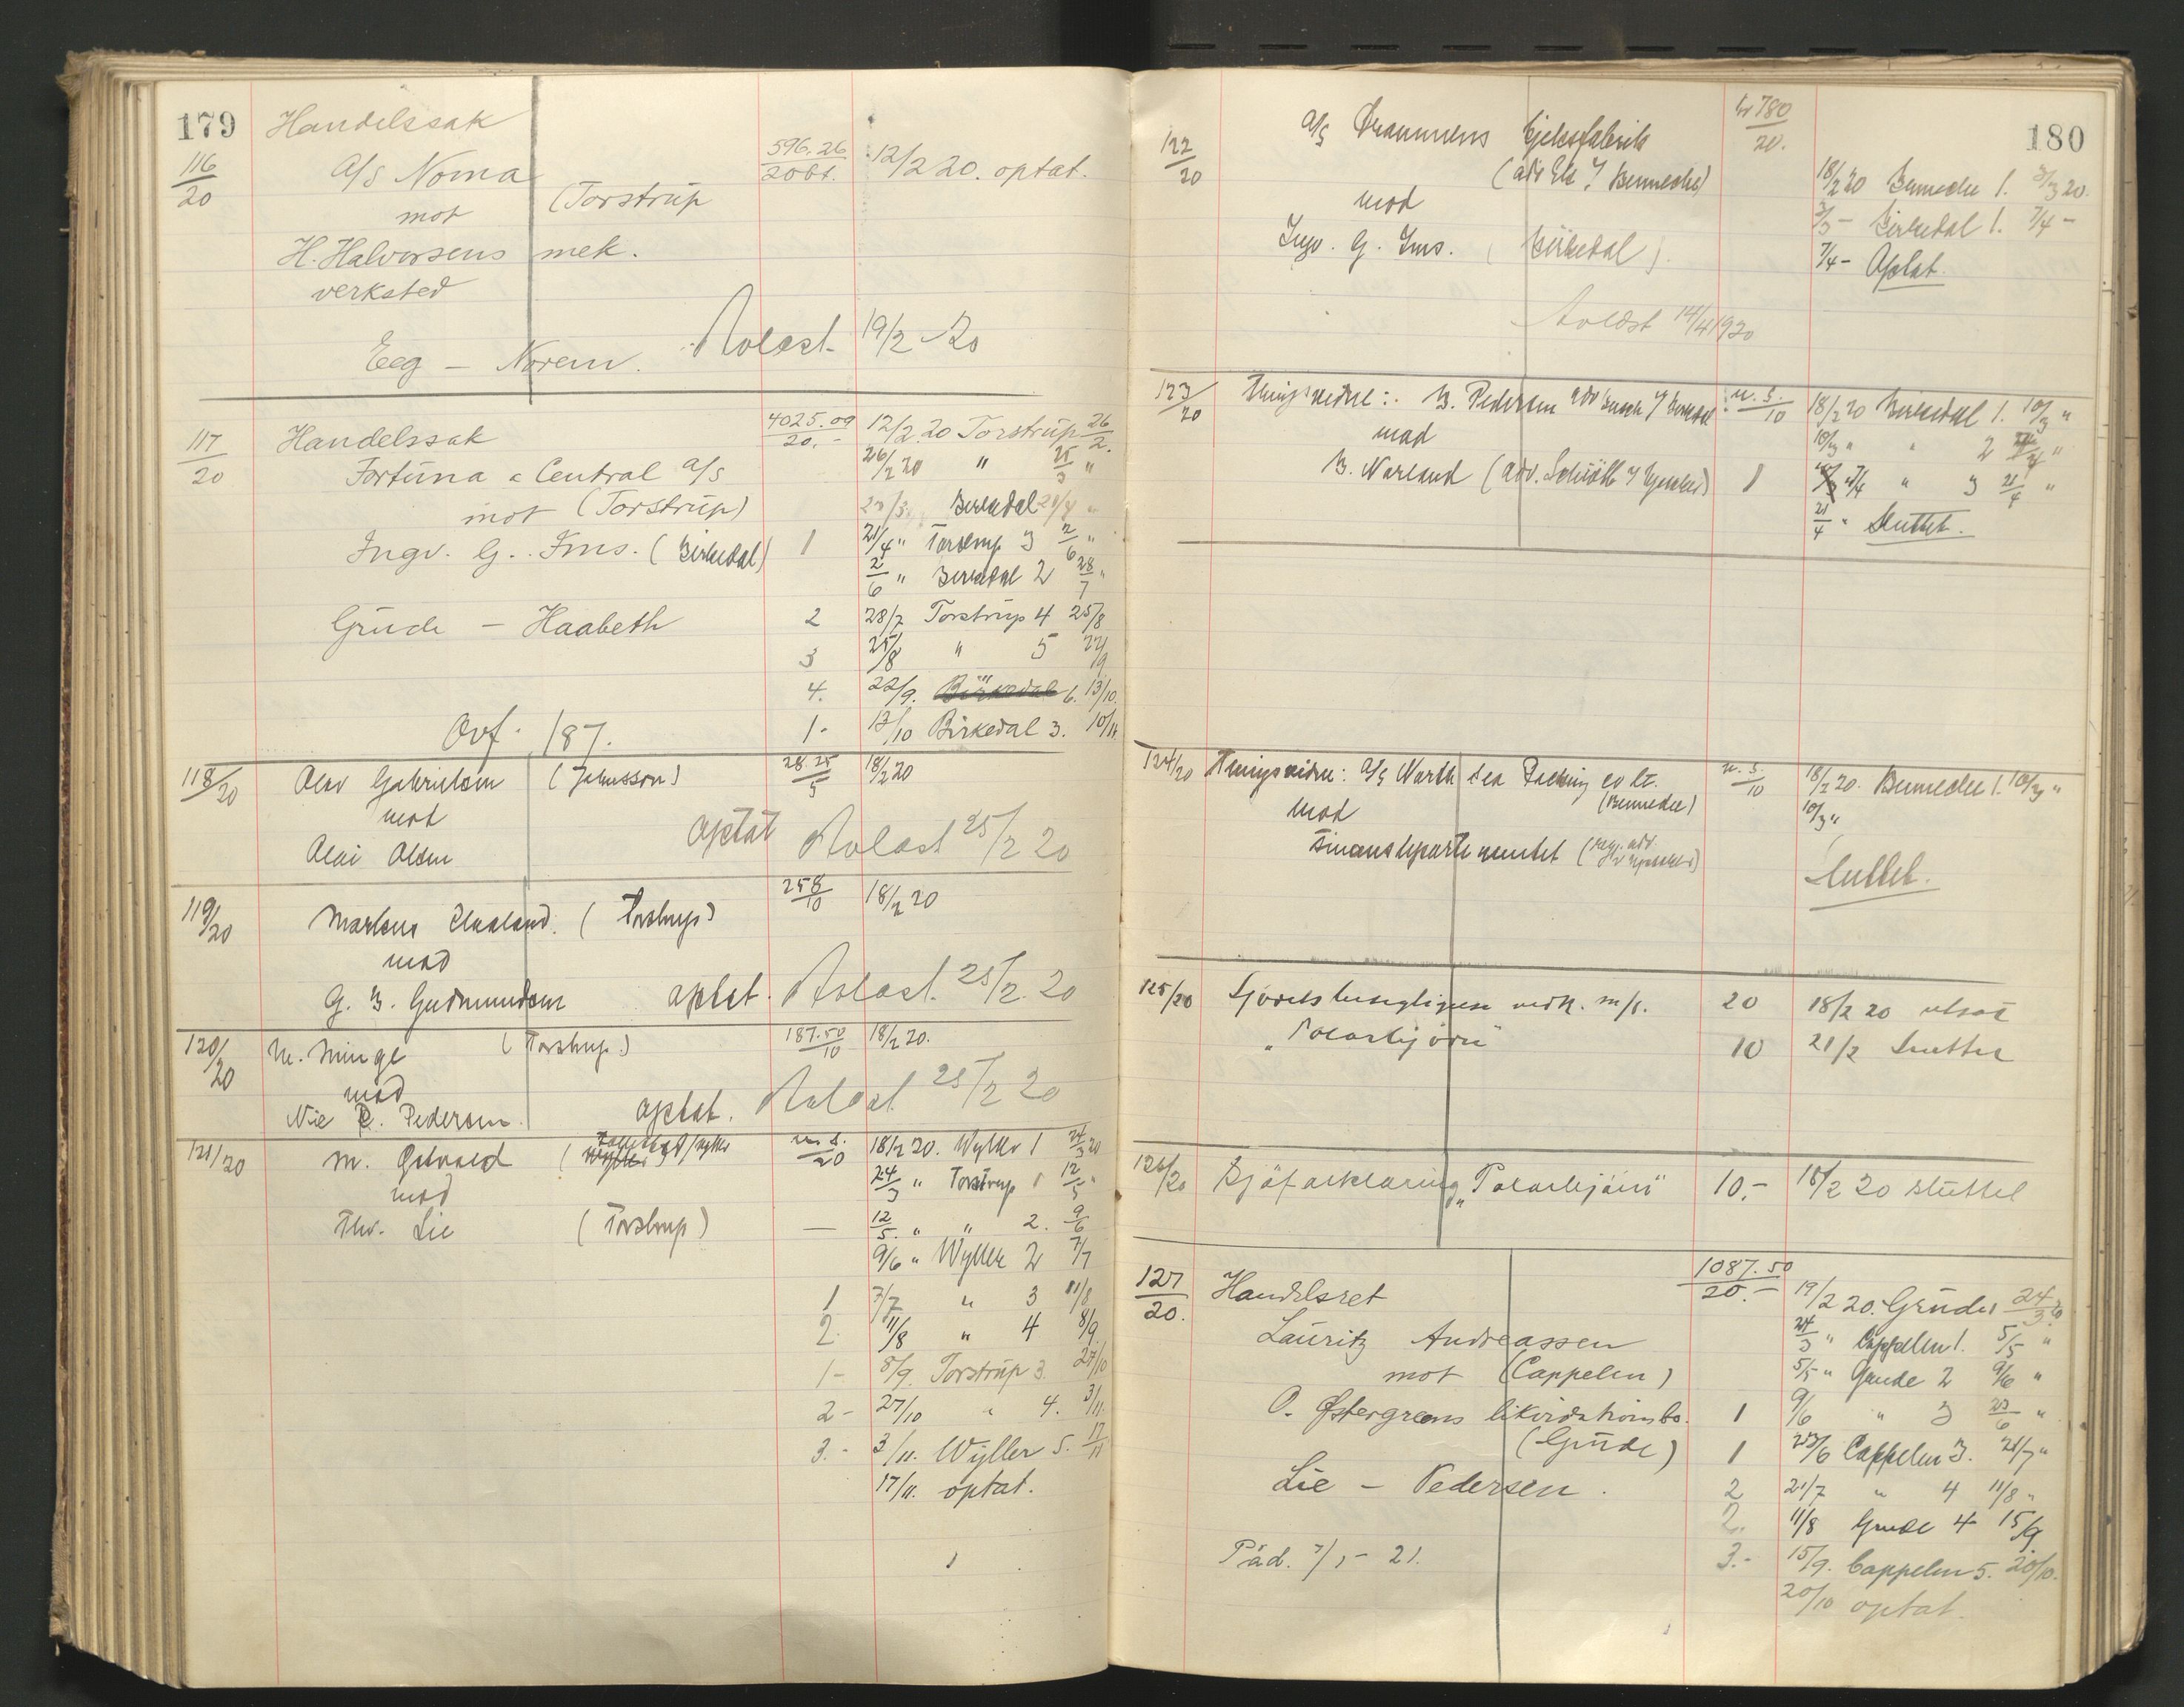 179
Handelssak
116/20
A/S Noma
596.26/20 bt.
12/2 20. optat.
mot (Torstrup
H. Halvorsens mek.
verksted
Eeg – Norem.
Avlæst 19/2 20
117/20
Handelssak
4025.09/20.-
12/2 20 Torstrup 26/2.
Fortuna & Central A/S
26/2 20 " 25/3 "
mot (Torstrup)
Birkedal 21/4 "
Ingv. G. Ims. (Birkedal)
1 21/4 " Torstrup 3 2/6 "
2/6 " Birkedal 2 28/7 "
Grude – Haabeth
2 28/7 Torstrup 4 25/8
3 25/8 " 5 22/9
4. 22/9. Birkedal 6. 13/10.
Ovf. 187.
1- 13/10 Birkedal 3. 10/11.
118/20
Olav Gabrielsen (Johnsson)
28.25/5
18/2 20
mot
Olai Olsen
optat Avlæst 25/2 20
119/20
258/10
18/2 20
Markus (Torstrup)
mod
G. B. Gudmundsen optat. Avlæst. 25/2. 20
120/20
M. Minge (Torstrup)
187.50/10
18/2 20.
mod
Nie P. Pedersen. optat. Avlæst 25/2 20
121/20
M.
u. s./20
18/2 20. Wyller 1 24/3 20
mod
24/3 " Torstrup 1 12/5 "
Thv. Lie (Torstrup)
— 12/5. " " 2. 9/6
9/6 " Wyller 2 7/7
1 7/7 " 3 11/8
2. 11/8 " 4 8/9.
1- 8/9. Torstrup 3. 27/10
2- 27/10 " 4. 3/11.
3.- 3/11. Wyller 5. 17/11
17/11. optat.
180
122/20
A/S Drammens Gjelsfabrik
kr 780/20.
(adv Bennecke)
18/2 20 Bennecke 1. 3/3 20.
mod
3/3 - Birkedal 1. 7/4 -
Ingv. G. Ims. (Birkedal)
7/4 - Optat.
Avlæst 14/4 1920
123/20
Thingsvidne: B. Pedersen adv
u. s./10
18/2 20 Birkedal 1. 10/3 "
mod
10/3 " " 2
B. Narland (adv.
1 7/4 " 3 21/4 "
21/4 " Sluttet.
124/20
Thingsvidne: A/S North Sea Packing co lt.
(Bennecke)
u. s./10
18/2 20. Bennecke 1. 10/3 "
mod
10/3 "
Finansdepartementet (reg. adv.
Sluttet.
125/20
Sjøretsbesigtigelse vedk. m/s.
20 18/2 20 utsat
"Polarbjørn"
10 21/2 Sluttet
126/20
Sjøforklaring "Polarbjørn"
10.- 18/2 20 sluttet
127/20.
Handelsret
1087.50/20.-
19/2 20. Grude 1 24/3 20
Lauritz Andreassen
24/3 " Cappelen 1. 5/5 "
mot (Cappelen)
5/5 " Grude 2 9/6 "
O. Østergrens likvidationsbo.
1 9/6 " 3 23/6 "
(Grude)
1 23/6 Cappelen 3. 21/7 "
Lie – Pedersen.
2 21/7 " 4 11/8 "
2. 11/8 Grude 4 15/9
Påd. 7/1 - 21.
3.- 15/9. Cappelen 5. 20/10.
20/10 optat.